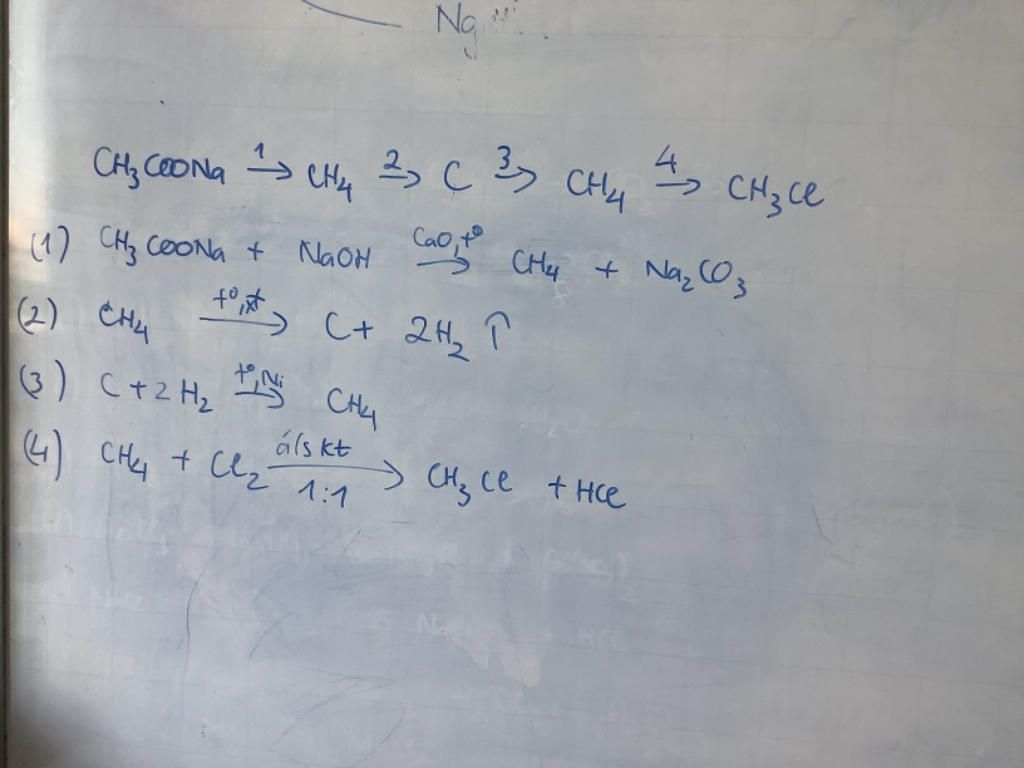 Na
CH₃COONa →1 CH₄ →2 C →3 CH₄ →4 CH₃Cl
(1) CH₃COONa + NaOH →CaO,t° CH₄ + Na₂CO₃
(2) CH₄ →t° C + 2H₂ ↑
(3) C + 2H₂ →t°,Ni CH₄
(4) CH₄ + Cl₂ →á/s kt 1:1 CH₃Cl + HCl